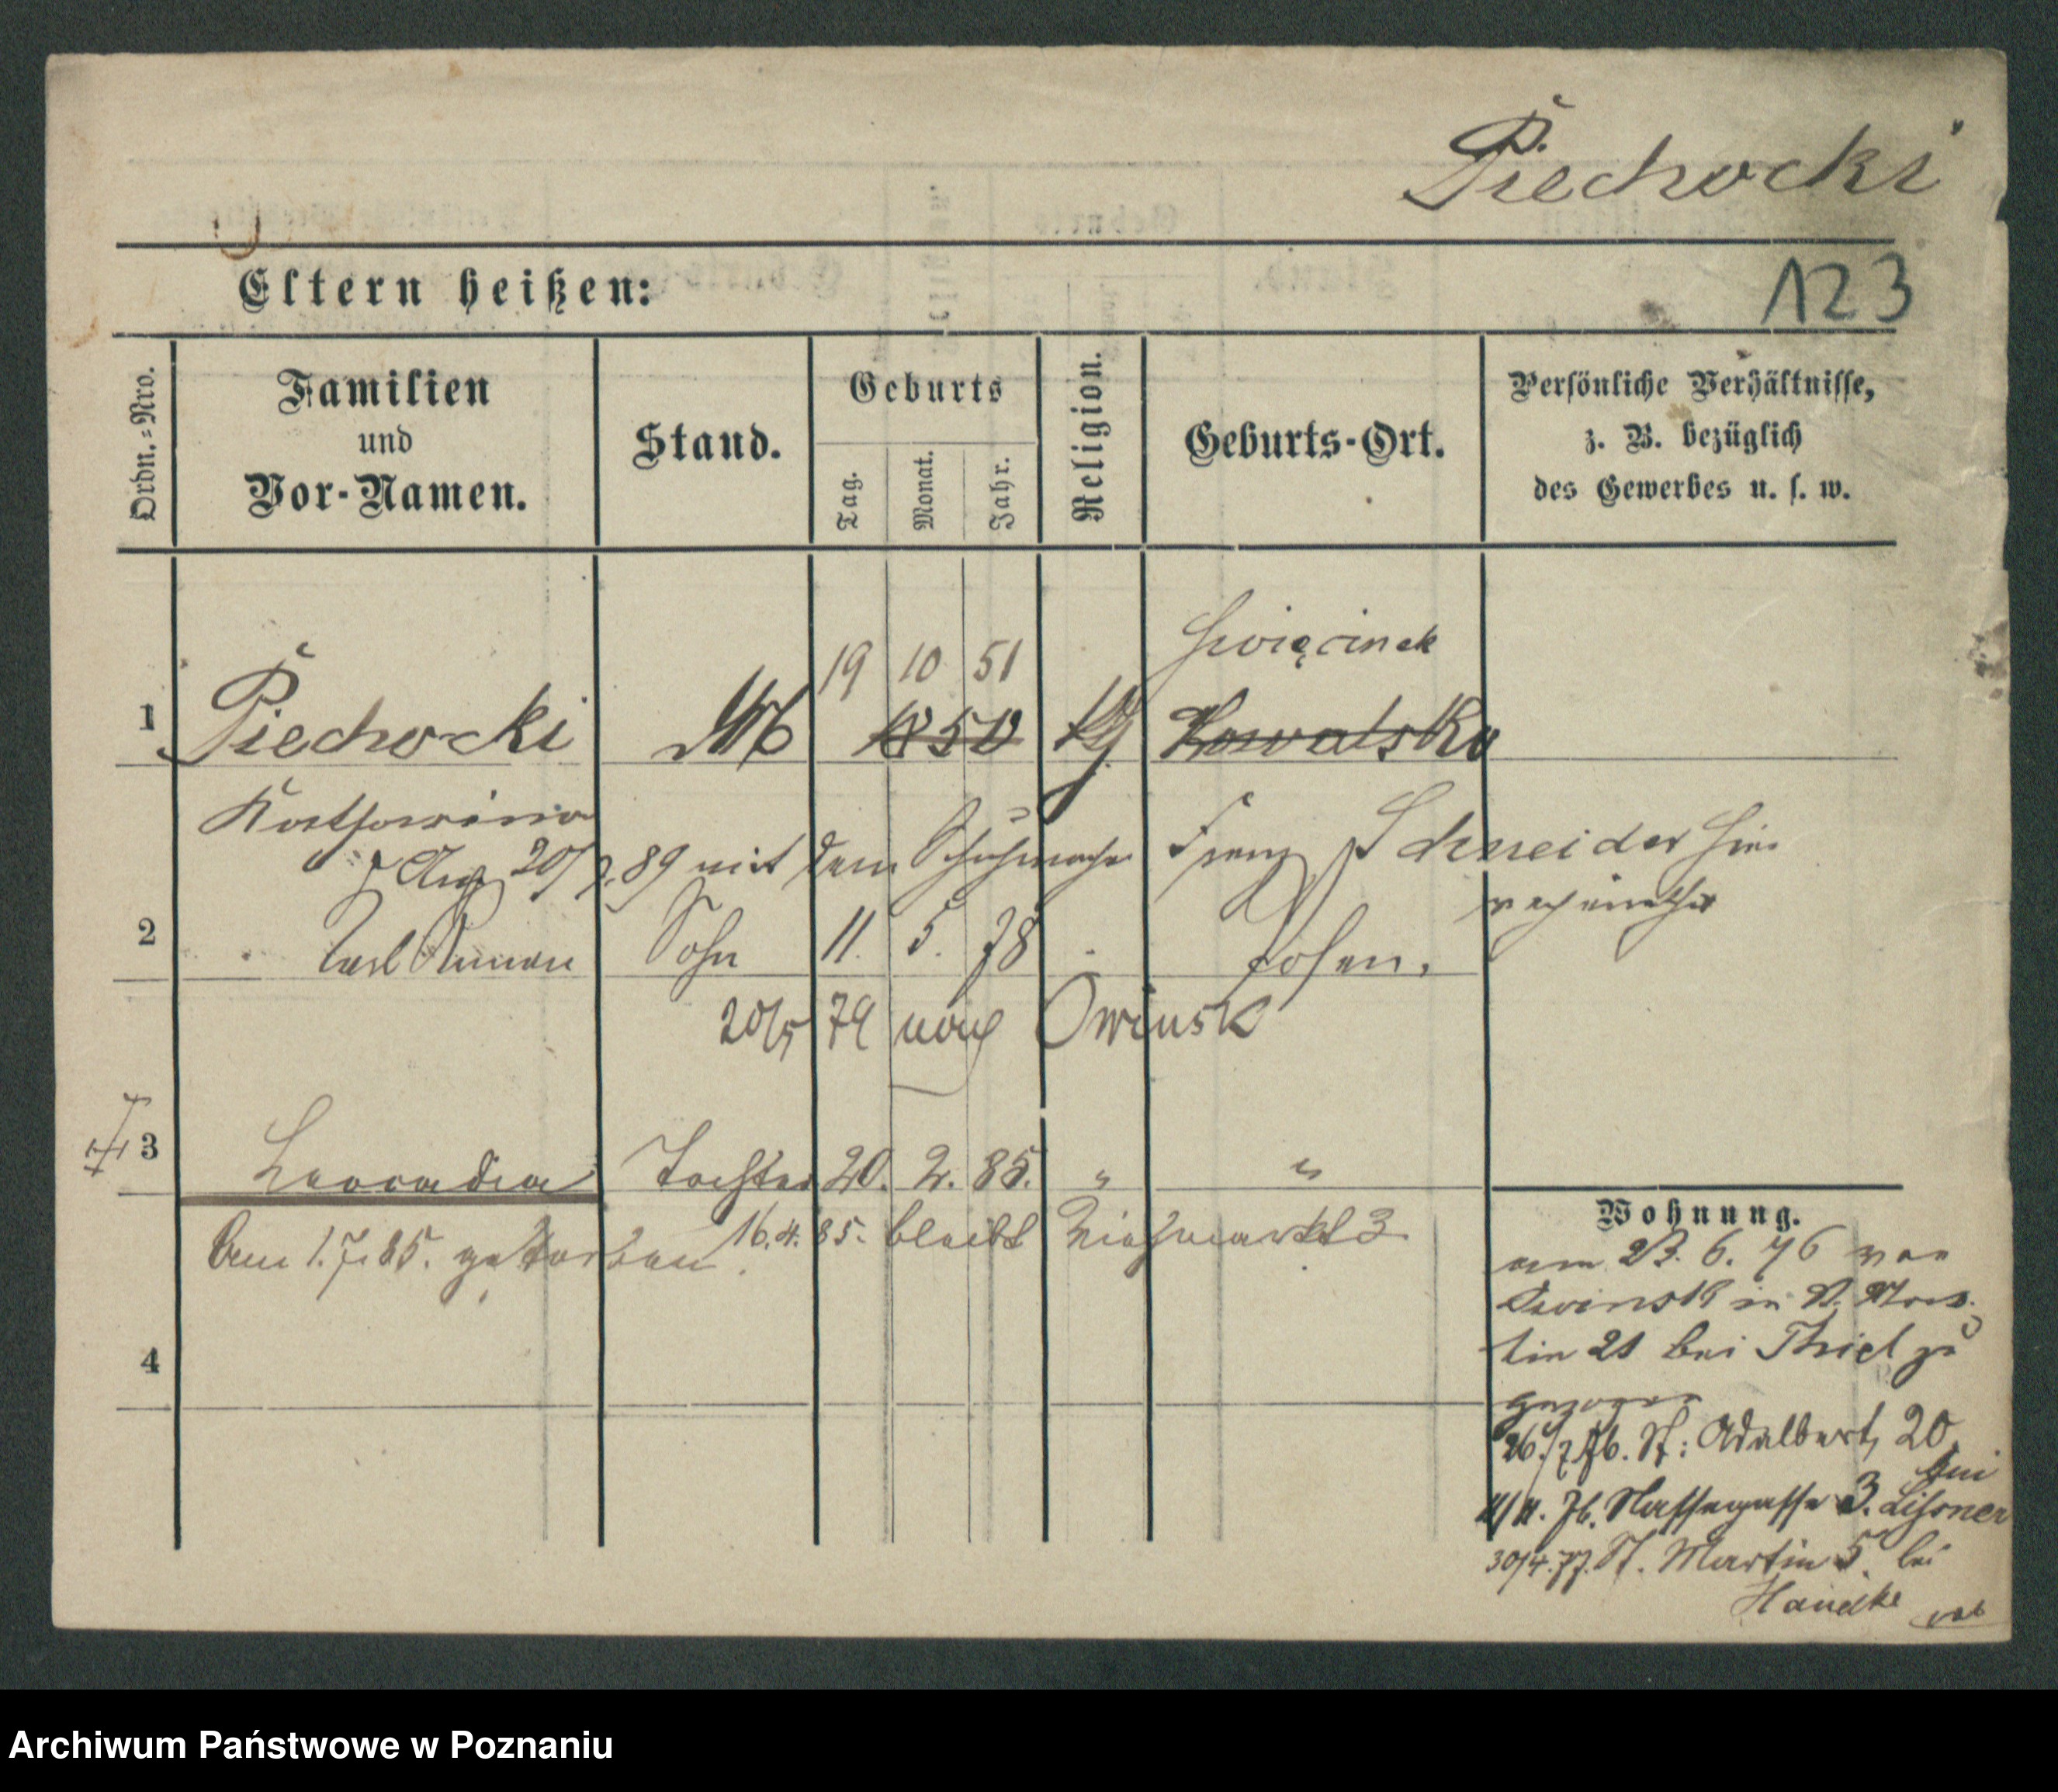 Piechocki
123
Eltern heißen:
Ordn.-Nro.
Familien
und
Vor-Namen.
Stand.
Geburts
Tag.
Monat.
Jahr.
Religion.
Geburts-Ort.
Persönliche Verhältnisse,
z. B. bezüglich
des Gewerbes u. s. w.
Święcinek
19 10 51
1 Piechocki 1850 Kowalsko
Katharina
20/ 89 mit dem Schuhmacher Franz Schneider hier
verheirathet
2 Carl Roman Sohn 11. 5. 78 Posen.
20/5 79 nach Owinsk
3 Leocadia Tochter 20. 2. 85. " "
16.4.85. bleibt Viehmarkt 3
Am 1.7.85. gestorben.
4
Wohnung.
am 23. 6. 76 von
Owinsk in St. Mar-
tin 21 bei Thiel zu
gezogen
26/7 76. St: Adalbert 20
bei
11/11. 76. Nassegasse 3. Lissner
30/4. 77. St. Martin 5. bei
Handke
Archiwum Państwowe w Poznaniu